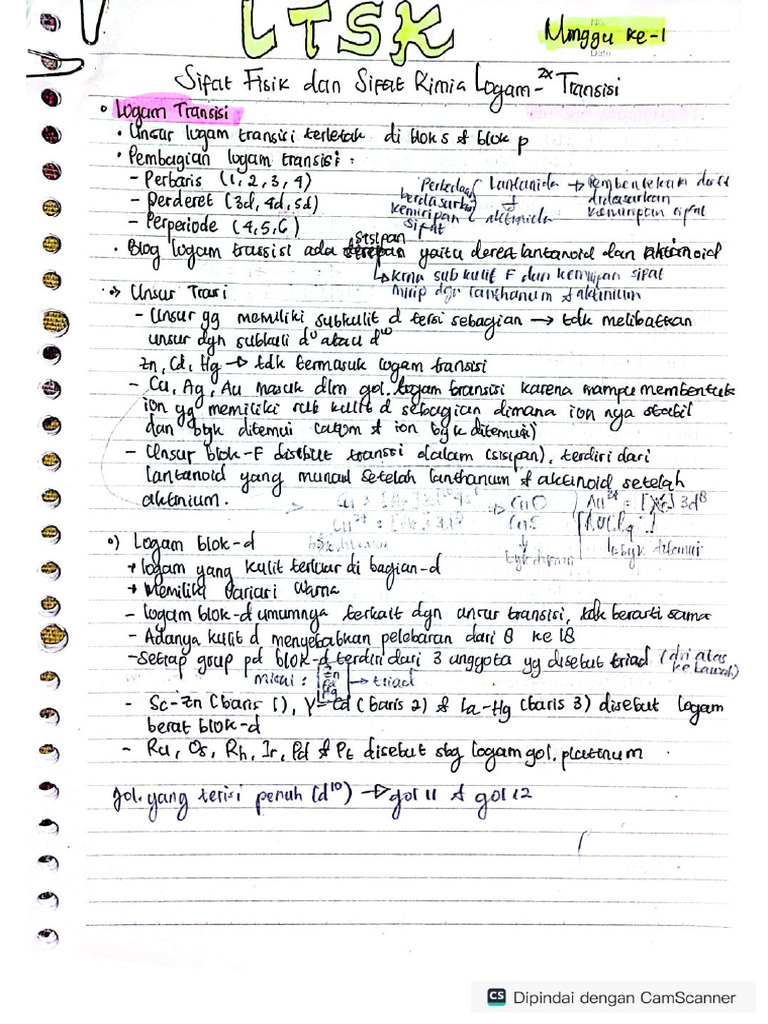 LTSK
Minggu ke-1
No.
Date
Sifat Fisik dan Sifat Kimia Logam-2x Transisi
Logam Transisi
• Unsur logam transisi terletak di blok s & blok p
• Pembagian logam transisi :
- Perbaris (1, 2, 3, 4)
- Perderet (3d, 4d, 5d)
- Perperiode (4, 5, 6)
Perbedaan Lantanida → Pembentukan deret
berdasarkan ↓ didasarkan
kemiripan aktinida kemiripan sifat
sifat
sisipan
• Blog logam transisi ada yaitu deret lantanoid dan aktinoid
↳ krna sub kulit F dan kemiripan sifat
mirip dgn lanthanum & aktinium
Unsur Trasi
- Unsur yg memiliki subkulit d tersi sebagian → tdk melibatkan
unsur dgn subkuli d⁰ atau d¹⁰
Zn, Cd, Hg → tdk termasuk logam transisi
- Cu, Ag, Au masuk dlm gol. logam transisi karena mampu membentuk
ion yg memiliki sub kulit d sebagian dimana ion nya stabil
dan byk ditemui & ion byk ditemui)
- Unsur blok-F disebut transisi dalam (sisipan), terdiri dari
lantanoid yang muncul setelah lanthanum & aktinoid setelah
aktinium.
CuO
CuS
3d⁸
o) Logam blok-d
→ logam yang kulit terluar di bagian-d
→ Memiliki variari warna
- logam blok-d umumnya terkait dgn unsur transisi, tdk berarti sama
- Adanya kulit d menyebabkan pelebaran dari 8 ke 18
- setiap grup pd blok-d terdiri dari 3 anggota yg disebut triad (dri atas
ke bawah)
misal : Zn Cd Hg → triad
- Sc-Zn (baris 1), Y-Cd (baris 2) & La-Hg (baris 3) disebut logam
berat blok-d
- Ru, Os, Rh, Ir, Pd & Pt disebut sbg logam gol. platinum
gol. yang terisi penuh (d¹⁰) → gol 11 & gol 12
CS Dipindai dengan CamScanner